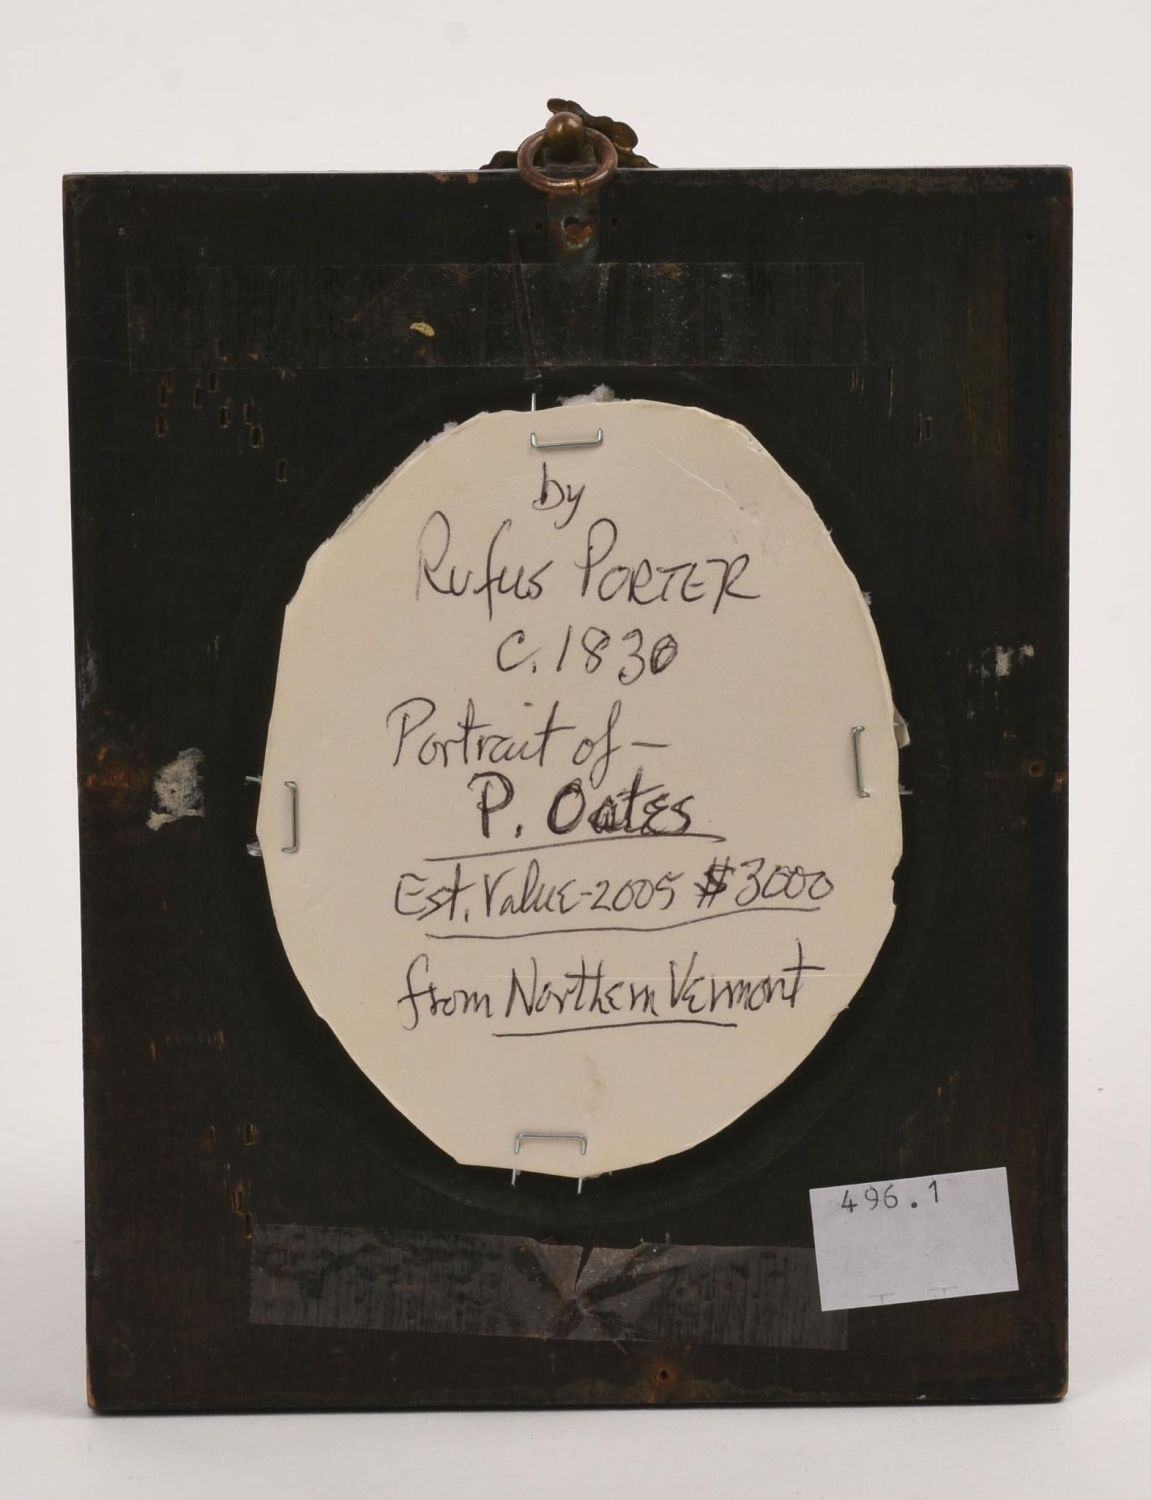 by
Rufus PORTER
c. 1830
Portrait of —
P. Oates
Est. Value - 2005 $3000
from Northern Vermont
496.1